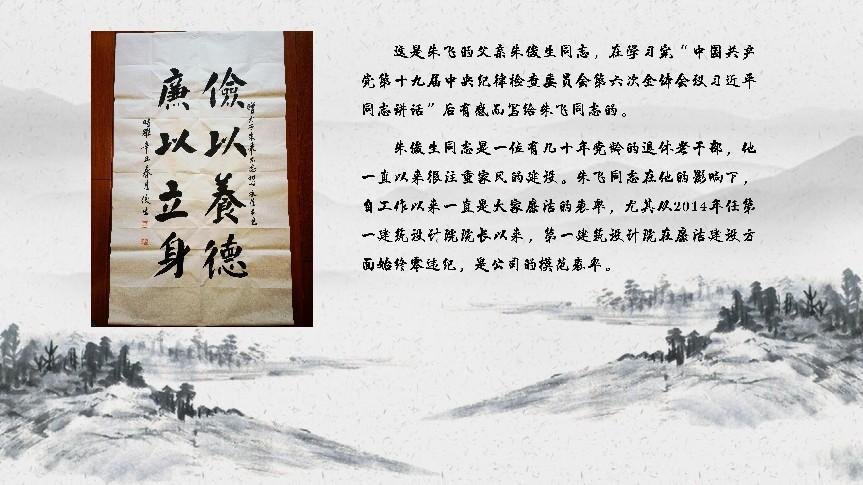 儉以養德
廉以立身
時雖辛丑春月俊生
这是朱飞的父亲朱俊生同志，在学习完“中国共产
党第十九届中央纪律检查委员会第六次全体会议习近平
同志讲话”后有感而写给朱飞同志的。
朱俊生同志是一位有几十年党龄的退休老干部，他
一直以来很注重家风的建设。朱飞同志在他的影响下，
自工作以来一直是大家廉洁的表率，尤其从2014年任第
一建筑设计院院长以来，第一建筑设计院在廉洁建设方
面始终零违纪，是公司的模范表率。